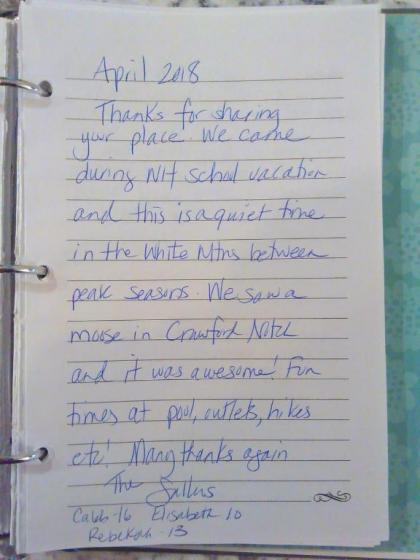 April 2018
Thanks for sharing
your place. We came
during NH school vacation
and this is a quiet time
in the White Mtns between
peak seasons. We saw a
moose in Crawford Notch
and it was awesome! Fun
times at pool, outlets, hikes
etc! Many thanks again
The
Caleb 16 Elisabeth 10
Rebekah 13